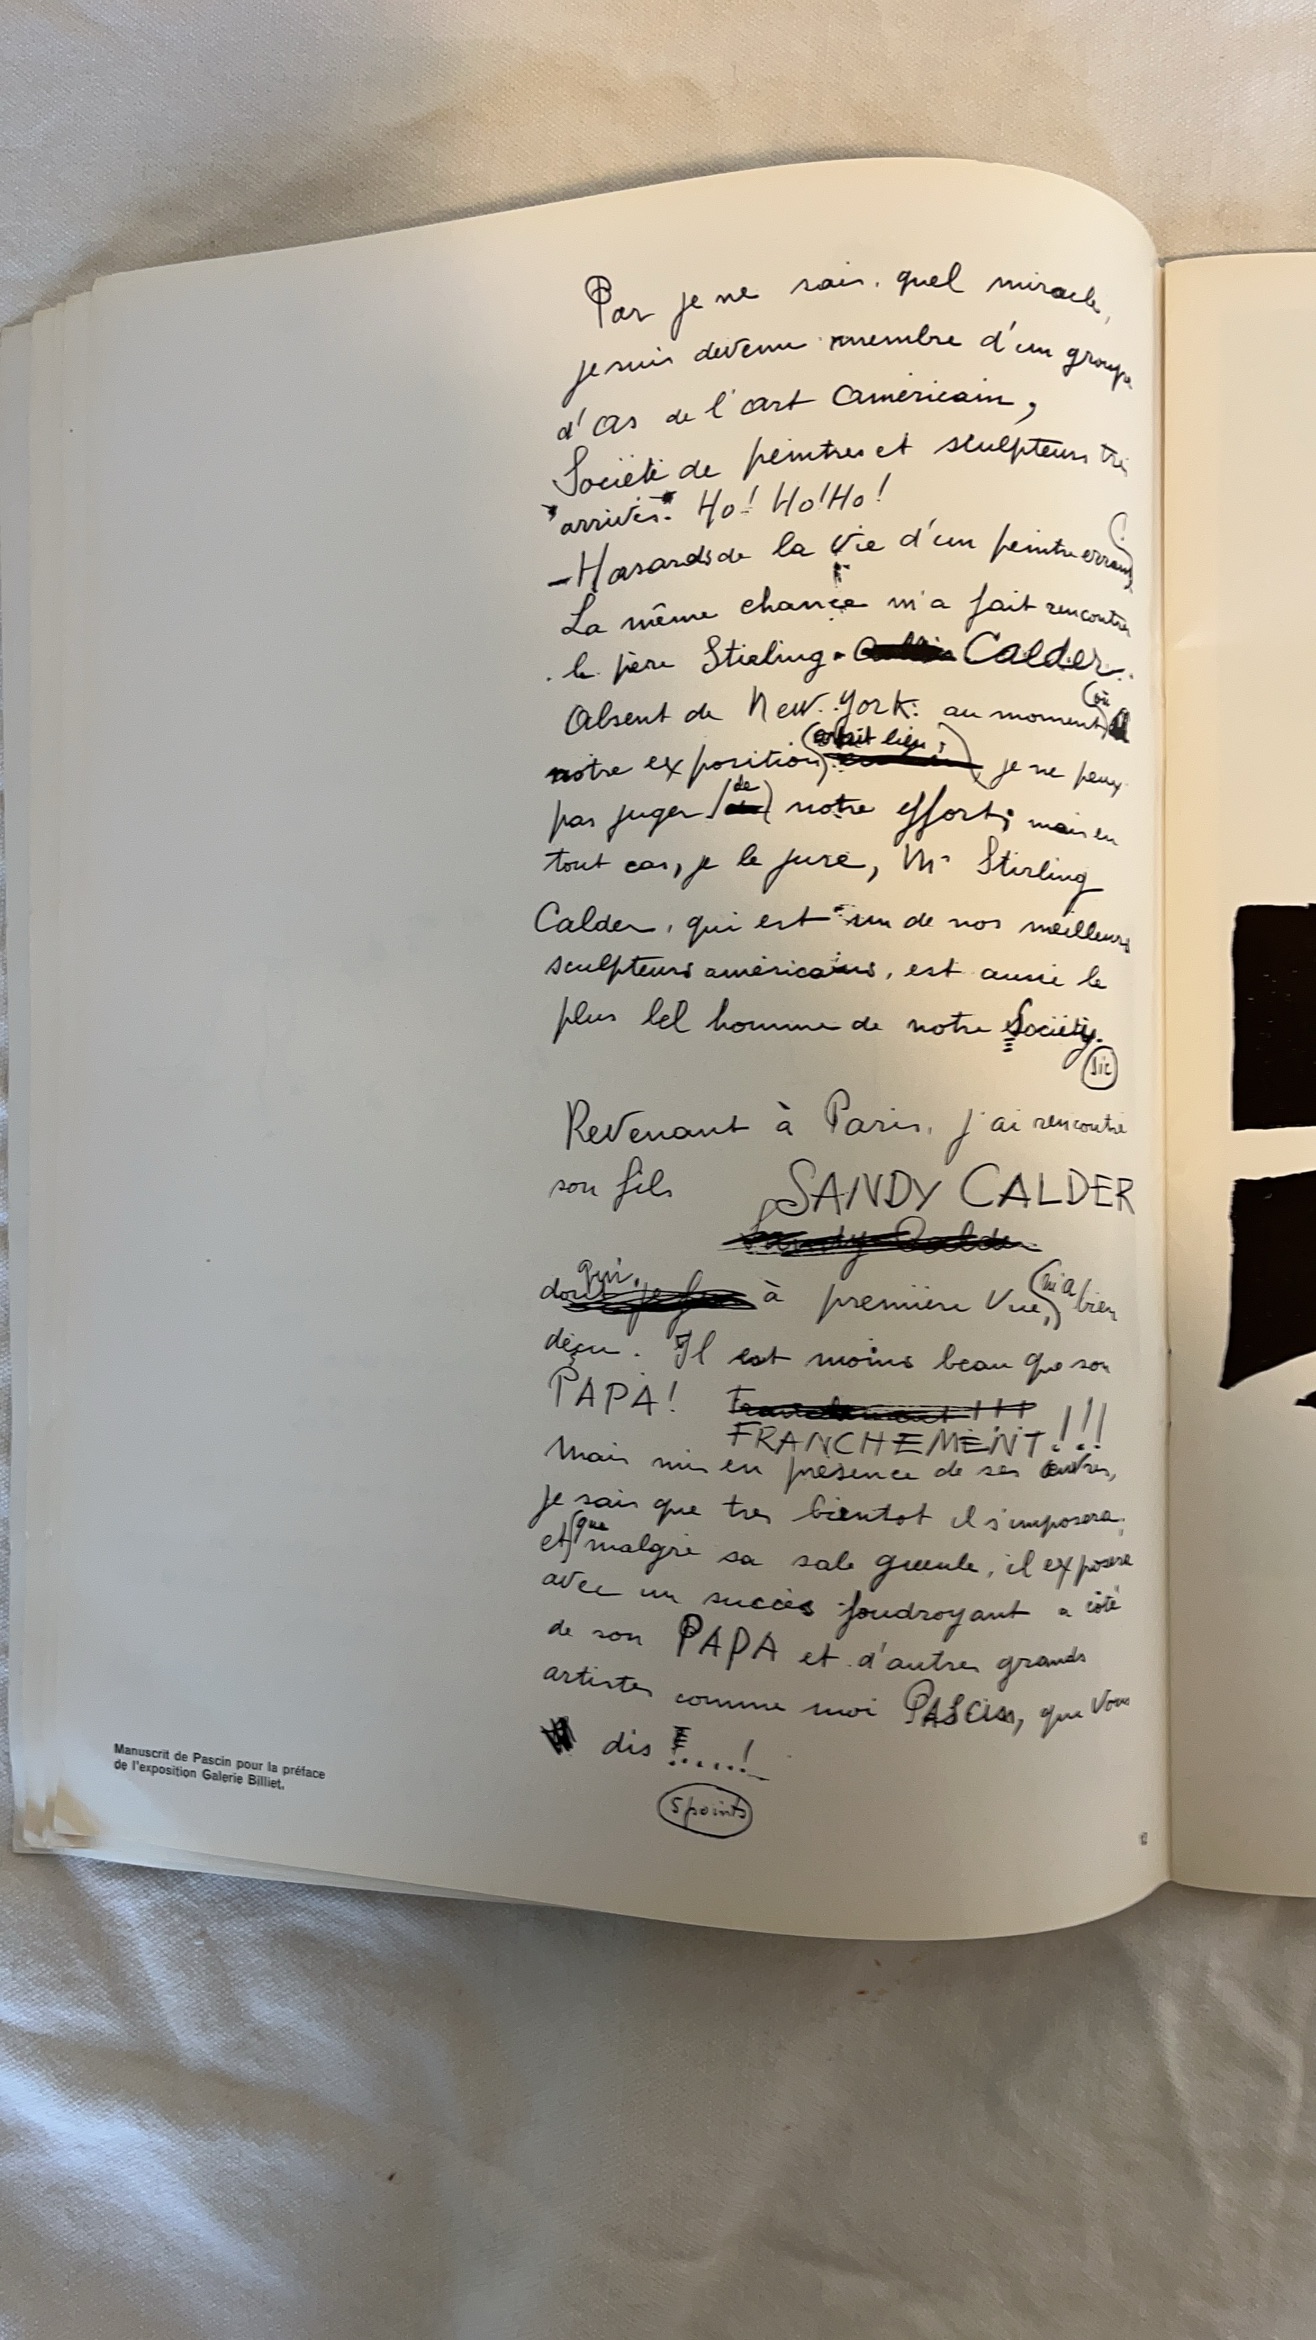 Par je ne sais quel miracle,
je suis devenu membre d'un groupe
d'as de l'art américain,
Société de peintres et sculpteurs très
"arrivés" Ho! Ho! Ho!
– Hasards de la vie d'un peintre errant
La même chance m'a fait rencontrer
le père Stirling Calder.
Absent de New-York au moment (où
notre exposition (avait lieu,) je ne peux
pas juger (de) notre effort; mais en
tout cas, je le jure, Mr Stirling
Calder, qui est un de nos meilleurs
sculpteurs américains, est aussi le
plus bel homme de notre Société.
sic
Revenant à Paris, j'ai rencontré
son fils SANDY CALDER
Sandy Calder
qui à première vue, (m'a) bien
déçu. Il est moins beau que son
PAPA! Franchement!!!
FRANCHEMENT!!!
Mais mis en présence de ses œuvres,
je sais que tres bientot il s'imposera;
et (que malgré sa sale gueule, il exposera
avec un succès foudroyant a côté
de son PAPA et d'autres grands
artistes comme moi PASCIN, que vous
dis !.....!
5 points
Manuscrit de Pascin pour la préface
de l'exposition Galerie Billiet.